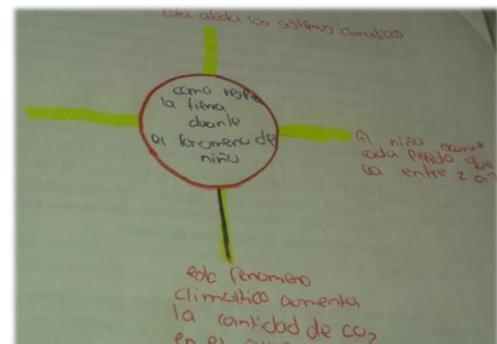 esta afecta los sistemas climaticos
como respira
la tierra
durante
el fenomeno del
niño
El niño ocurre
cada periodo que
va entre 2 o 7
este fenomeno
climatico aumenta
la cantidad de co2
en el